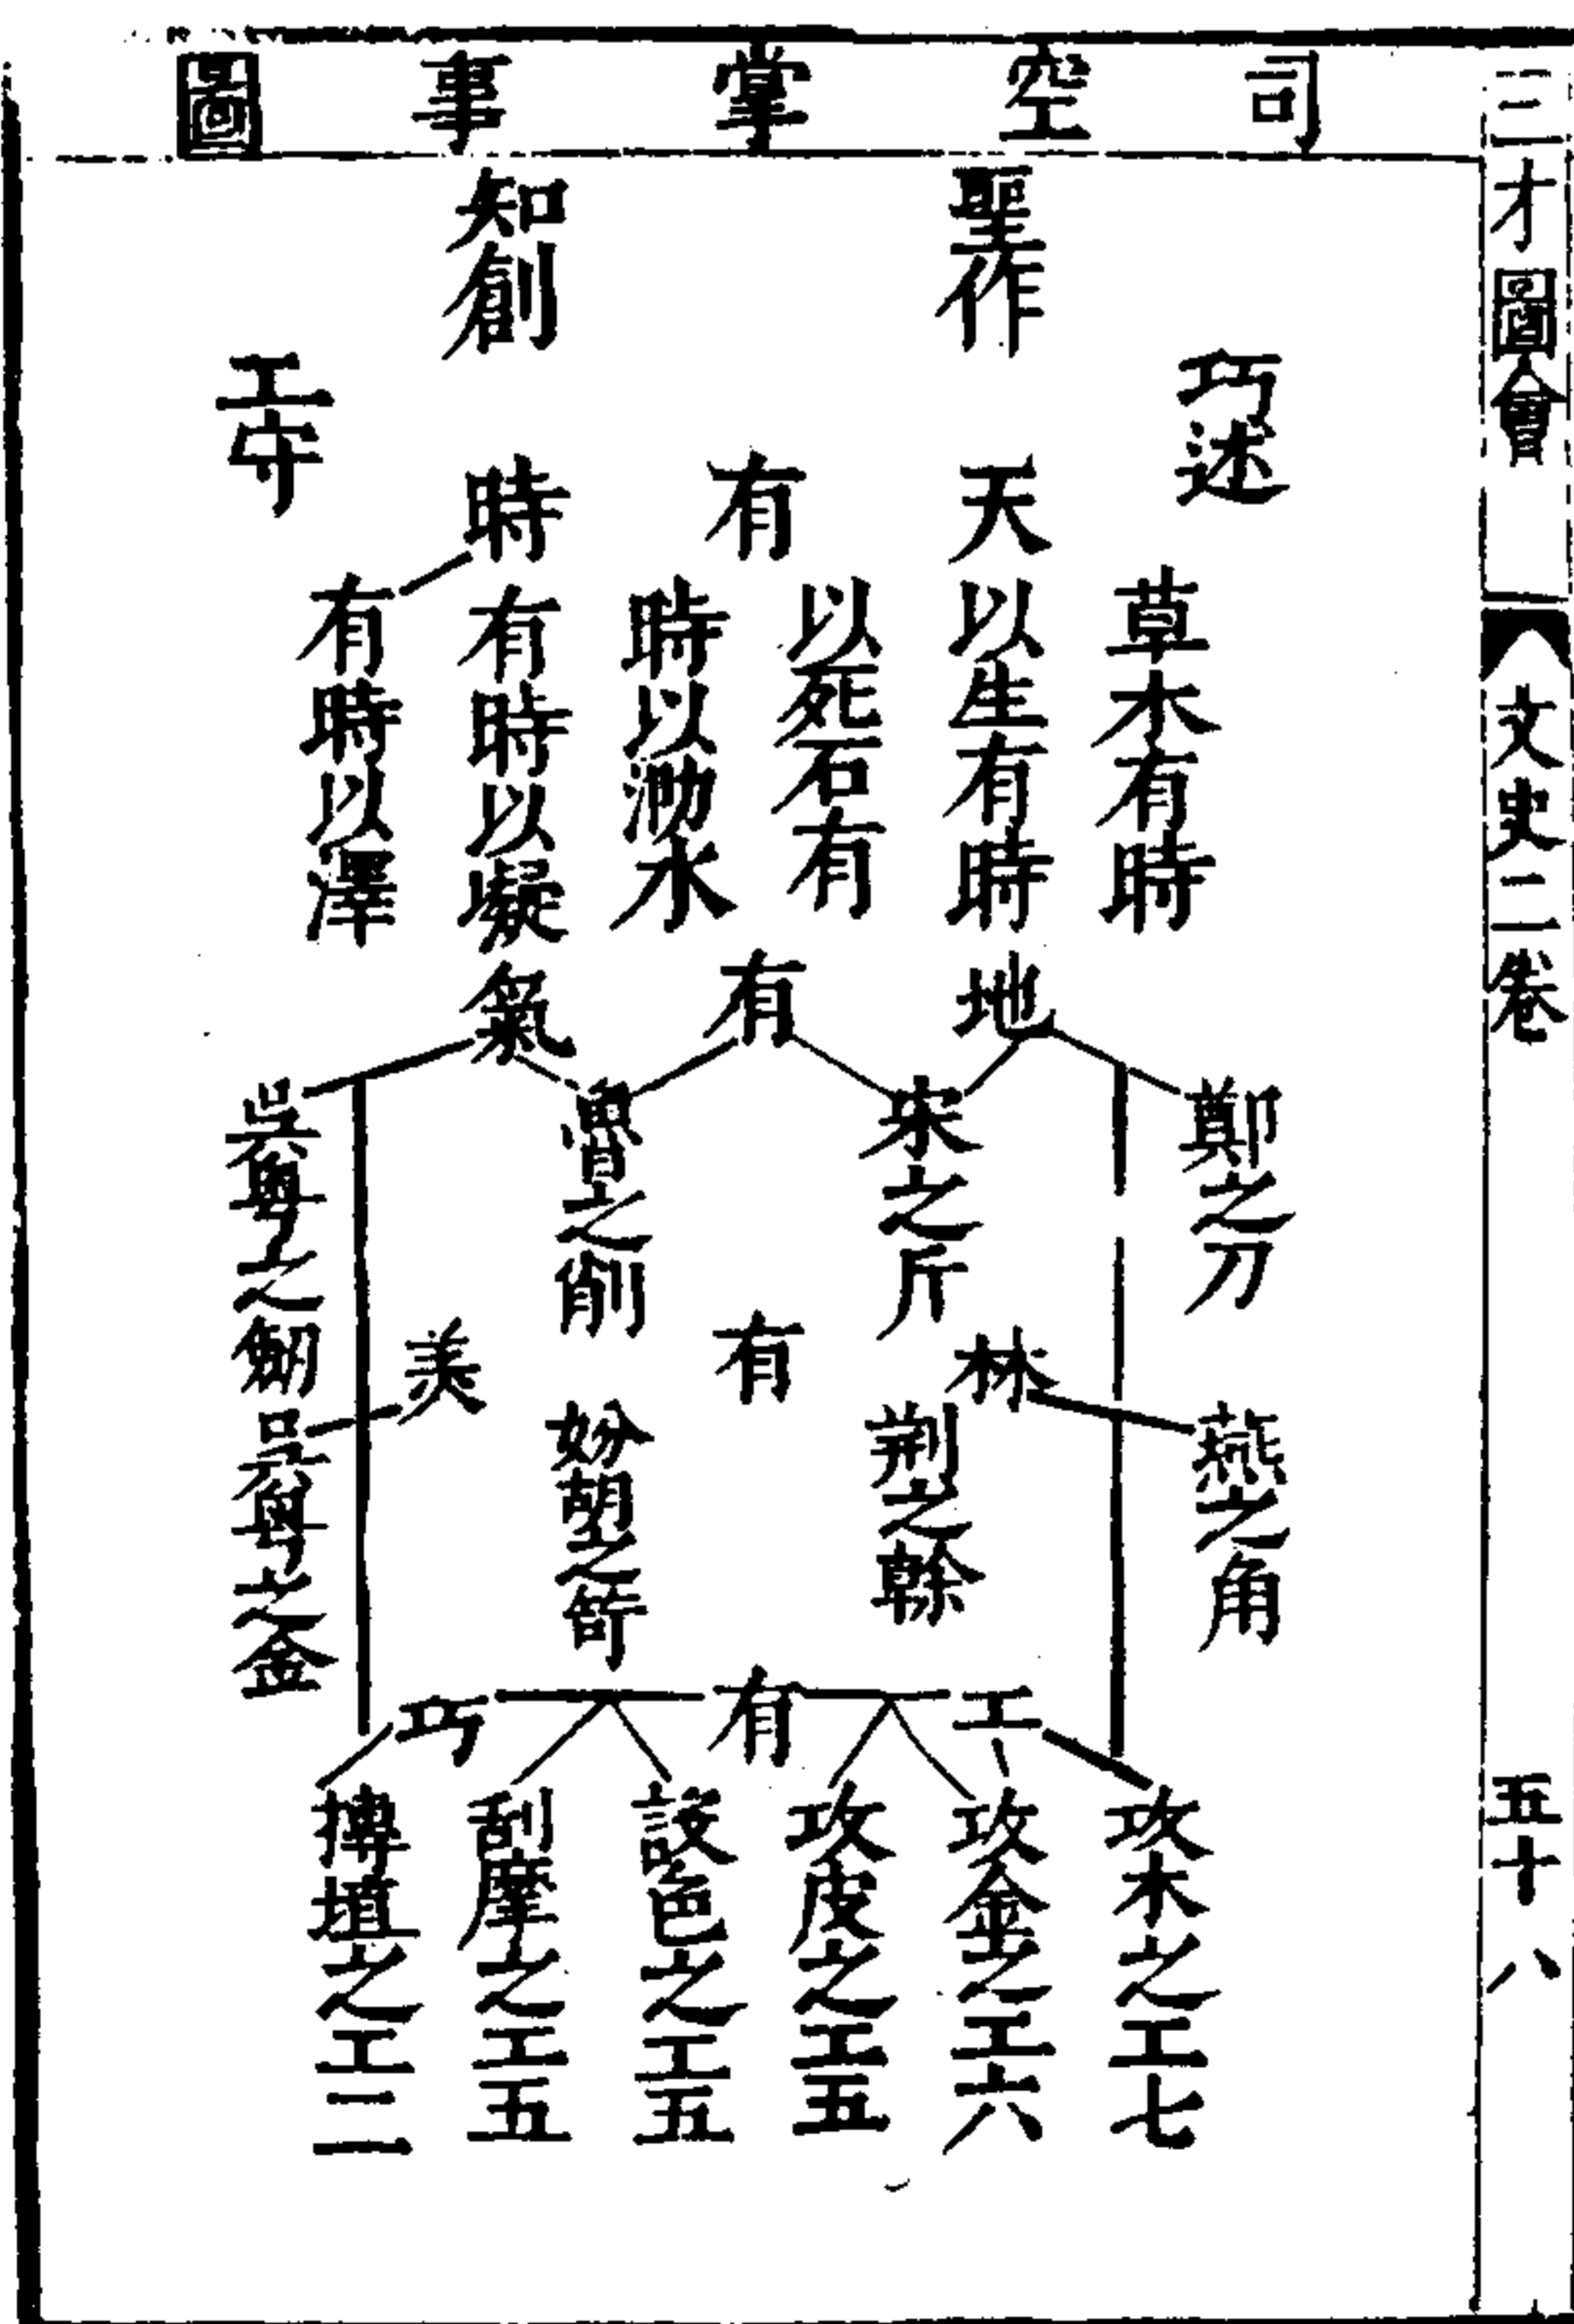 三才圖會
文史二卷
五十八
司空掌事圖
聖作
知創
巧述
工守
天有時
草木有時
以生有時
以死石有
時以泐水
有時以凝
有時以澤
地有氣
鄭之刀
宋之斤
魯之削
吳粵之劒
林有美
燕之角
荆之幹
妢胡之笴
吳粵之金
工有巧
攻木之工七
攻金之工六
攻皮之工五
設色之工五
刮摩之工五
摶埴之工二